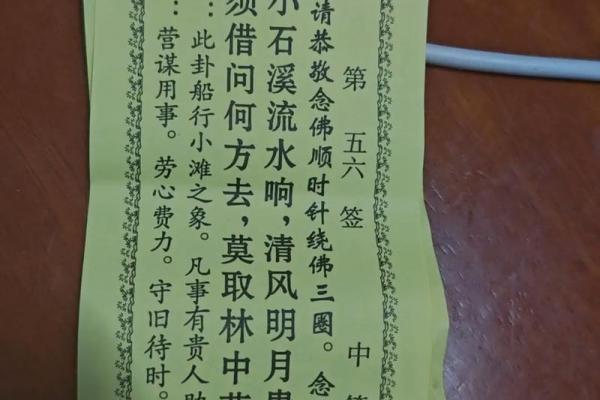 第五六签 中
请恭敬念佛顺时针绕佛三圈。念
小石溪流水响，清风明月
须借问何方去，莫取林中
：此卦船行小滩之象。凡事有贵人
：营谋用事。劳心费力。守旧待时。